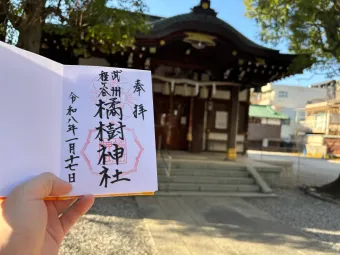 奉拝
武州
程ヶ谷
橘樹神社
令和八年一月十一日